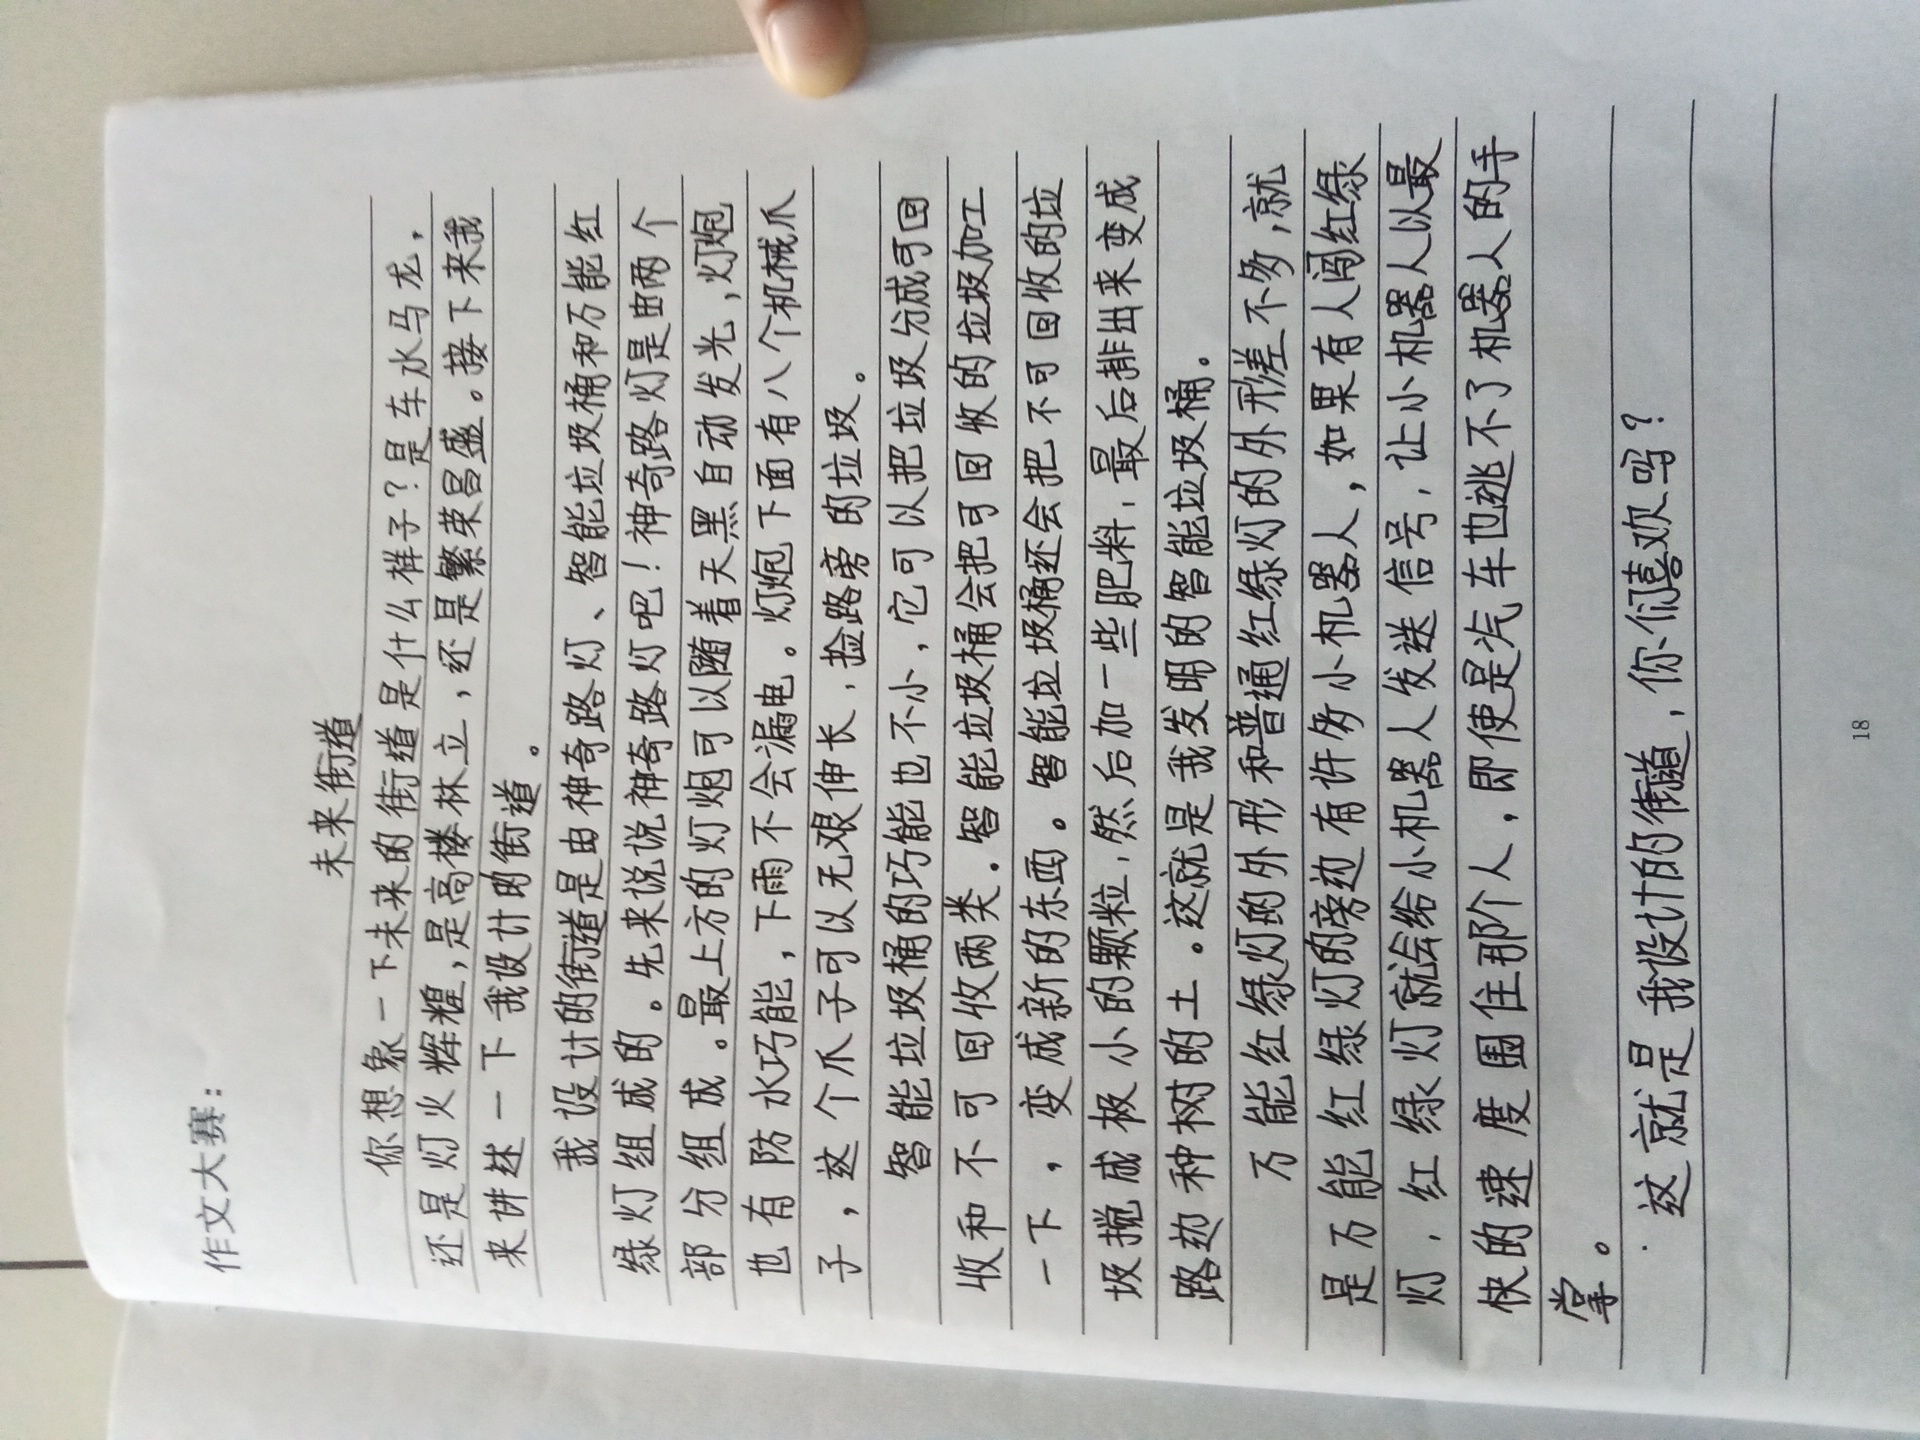 作文大赛：
未来街道
你想象一下未来的街道是什么样子？是车水马龙，
还是灯火辉煌，是高楼林立，还是繁荣昌盛。接下来我
来讲述一下我设计的街道。
我设计的街道是由神奇路灯、智能垃圾桶和万能红
绿灯组成的。先来说说神奇路灯吧！神奇路灯是由两个
部分组成。最上方的灯炮可以随着天黑自动发光，灯炮
也有防水巧能，下雨不会漏电。灯炮下面有八个机械爪
子，这个爪子可以无艰伸长，捡路旁的垃圾。
智能垃圾桶的巧能也不小，它可以把垃圾分成可回
收和不可回收两类。智能垃圾桶会把可回收的垃圾加工
一下，变成新的东西。智能垃圾桶还会把不可回收的垃
圾搅成极小的颗粒，然后加一些肥料，最后排出来变成
路边种树的土。这就是我发明的智能垃圾桶。
万能红绿灯的外形和普通红绿灯的外形差不多，就
是万能红绿灯的旁边有许多小机器人，如果有人闯红绿
灯，红绿灯就会给小机器人发送信号，让小机器人以最
快的速度围住那个人，即使是汽车也逃不了机器人的手
掌。
这就是我设计的街道，你们喜欢吗？
18